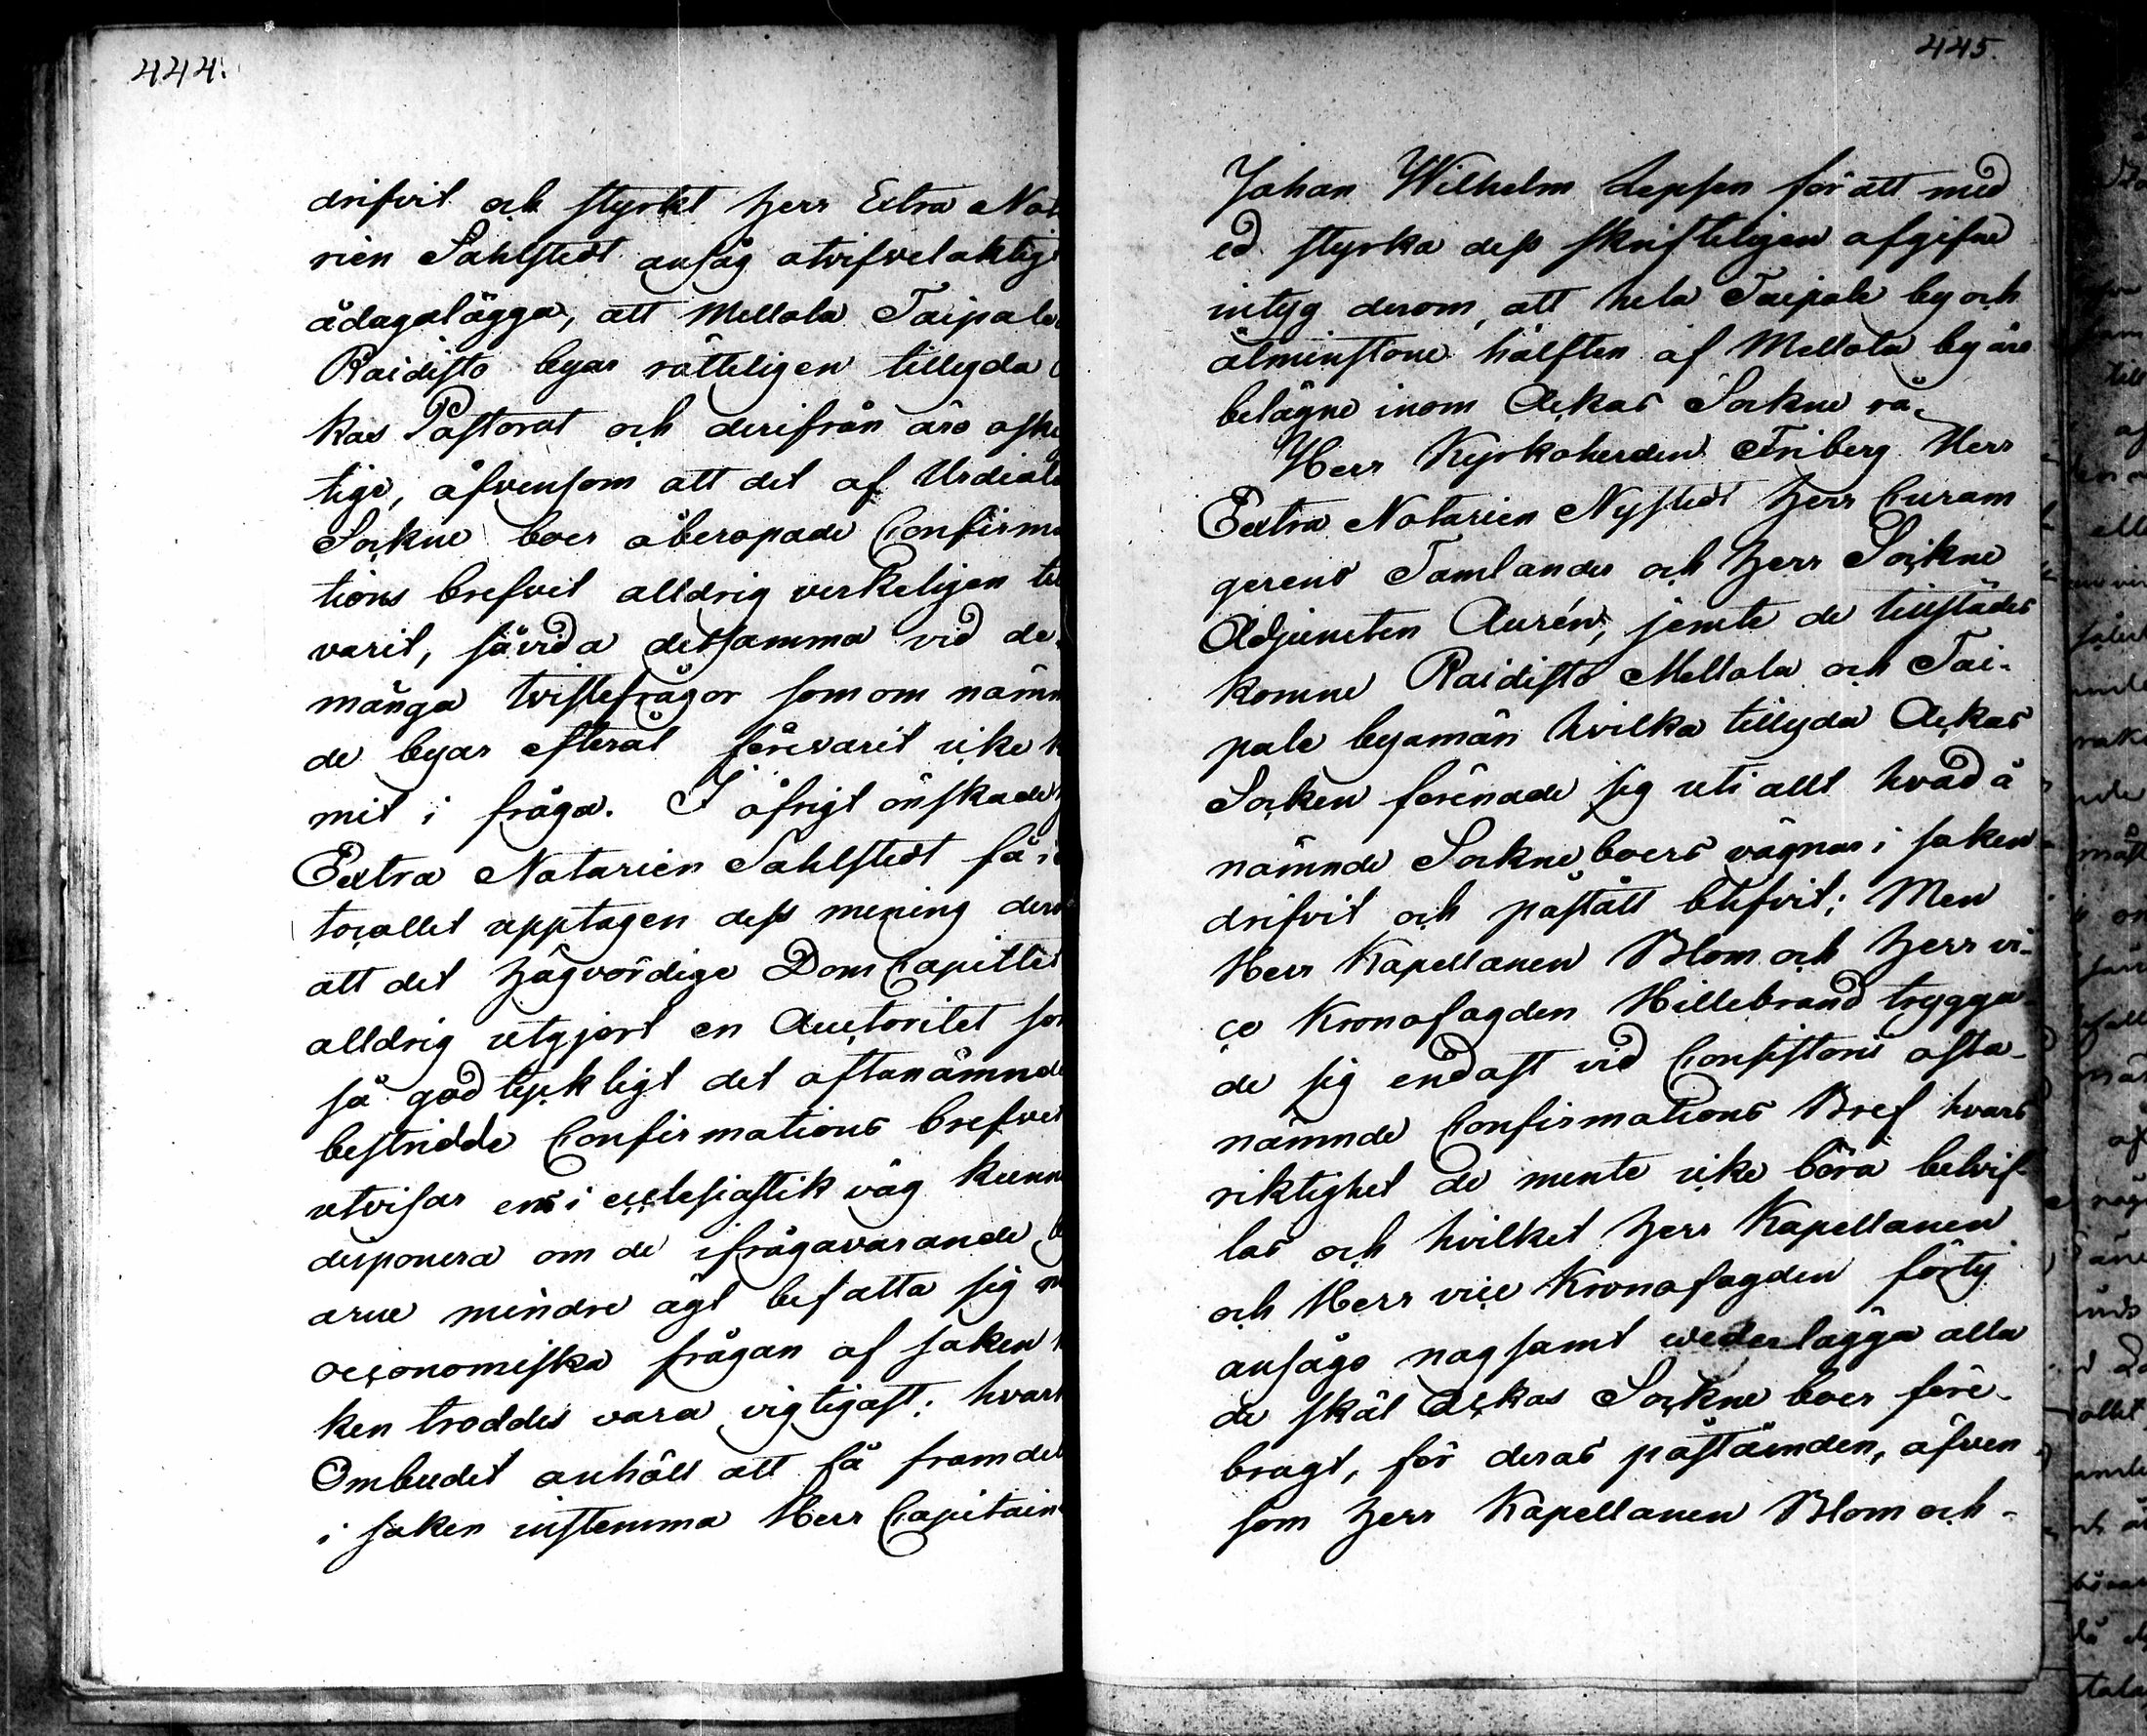 444.
drifvit och styrkt herr Extra No
rien Sahlstedt ansåg otvifvelaktig
ådagalägga, att Mellola Taipale
Raidisto byar rätteligen tillyda
kas Pastorat och derifrån äro
tige, äfvensom att det af Urdiala
Sockne boer åberopade Confirma
tions brefvet alldrig verkeligen
varit, såvida detsamma vid de
många tvistefrågor som om nämn
de byar efteråt förevarit icke
mit i fråga. I öfrigt önskade
Extra Notarien Sahlstedt få i
tocallet upptagen dess mening
att det högvördige Dom Capittlet
alldrig utgjort en Auctoritet
så godtyckligt det oftanämnde
bestridde Confirmations brefvet
utvisar ens i ecclesiastik väg kunn
disponera om de ifrågavarande
arne mindre ägt befatta sig
oeconomiska frågan af saken
ken troddes vara vigtigast;
Ombudet anhöll att få framdel
i saken instemma Herr Capitain
445.
Johan Wilhelm Lepsen för att med
ed styrka dess skrifteligen afgifne
intyg derom, att hela Taipale by och
åtminstone hälften af Mellola by äro
belägne inom Ackas Sockne rå.
Herr Kyrkoherden Friberg Herr
Extra Notarien Nystedt herr Curam
gerens Tamlander och herr Sockne
Adjuncten Aurén, jemte de tillstädes
komne Raidisto Mellola och Tai-
pale byamän hvilka tillyda Ackas
Socken förenade sig uti allt hvad å
nämnde Sockne boers vägnar i saken
drifvit och påstått blifvit; Men
Herr Kapellanen Blom och herr vi-
ce Kronofogden Hillebrand trygga-
de sig endast vid Consistorii ofta-
nämnde Confirmations Bref hvars
riktighet de mente icke böra betvif-
las och hvilket herr Kapellanen
och Herr vice Kronofogden förty
ansågo nogsamt wederlägga alla
de skäl Ackas Sockne boer före-
bragt, för deras påståenden, äfven
som herr Kapellanen Blom och-